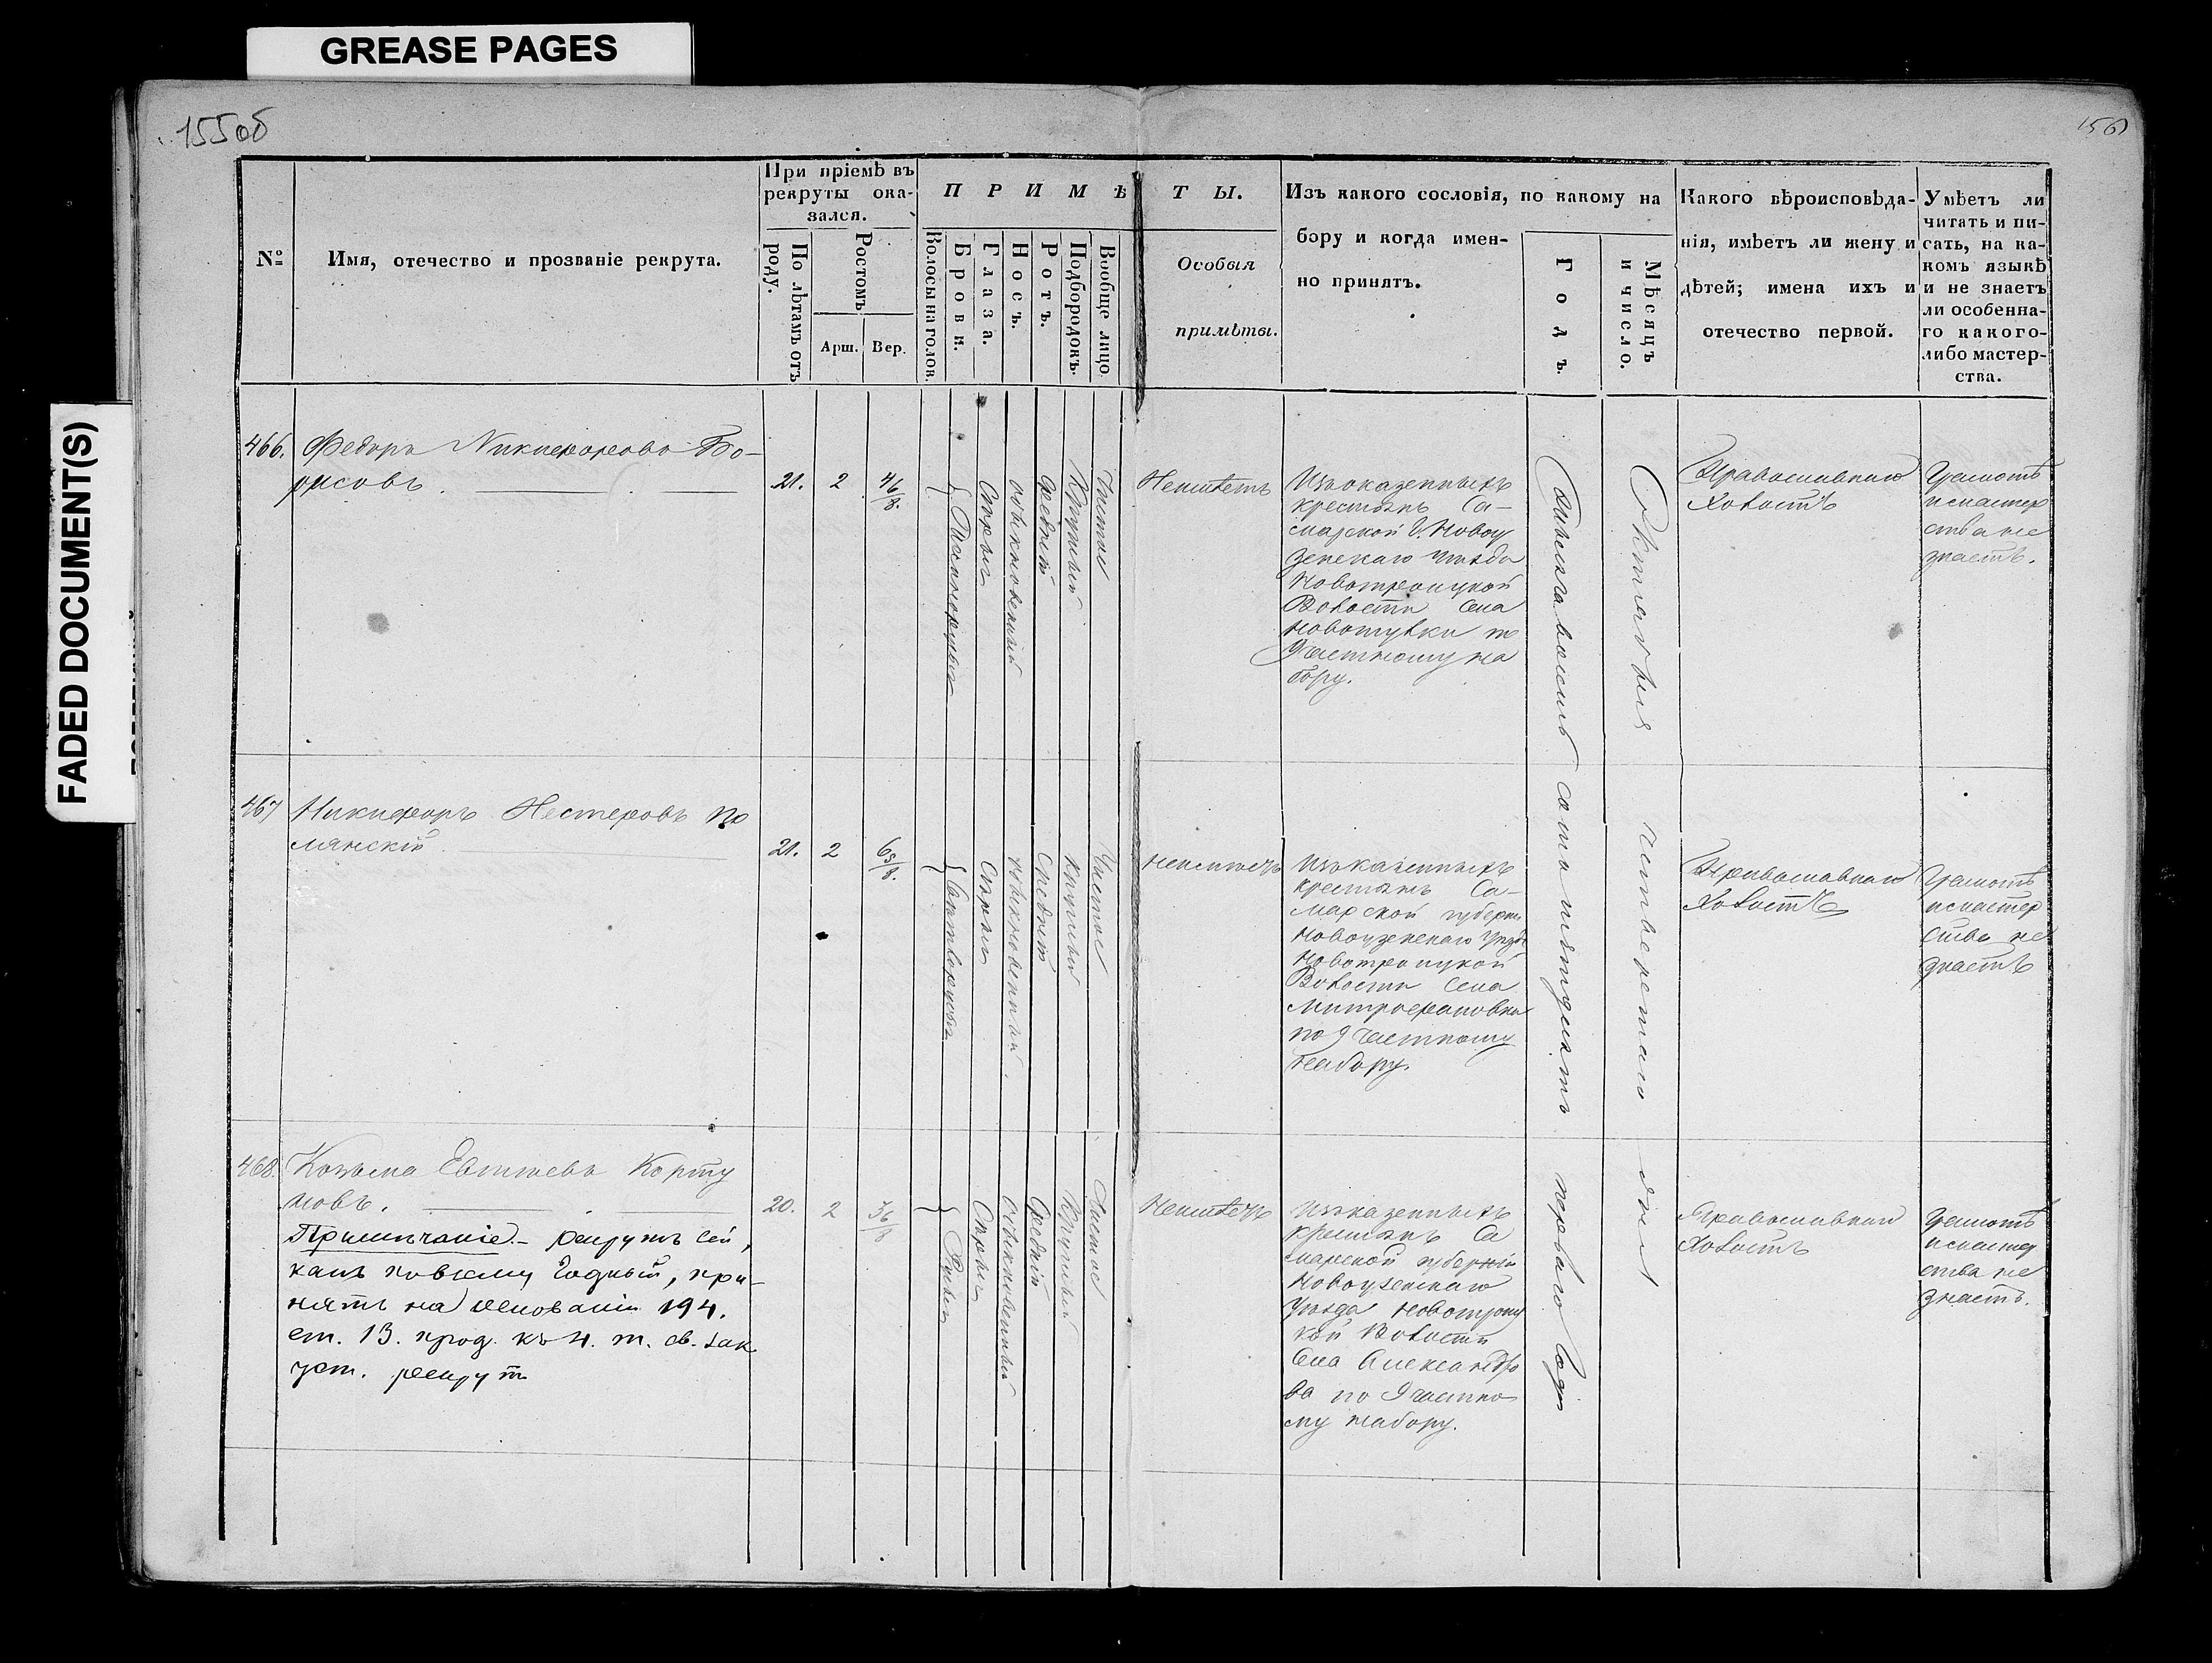 GREASE PAGES
FADED DOCUMENT(S)
155об
156
№
Имя, отечество и прозваніе рекрута.
При пріемѣ въ
рекруты ока-
зался.
По лѣтамъ отъ
роду.
Ростомъ
Арш.
Вер.
ПРИМѢТЫ.
Волосы на голов.
Брови.
Глаза.
Носъ.
Ротъ.
Подбородокъ.
Вообще лицо
Особыя
примѣты.
Изъ какого сословія, по какому на
бору и когда имен-
но принятъ.
Годъ.
Мѣсяцъ
и число.
Какого вѣроисповѣда-
нія, имѣетъ ли жену и
дѣтей; имена ихъ и
отечество первой.
Умѣетъ ли
читать и пи-
сать, на ка-
комъ языкѣ
и не знаетъ
ли особенна-
го какого-
либо мастер-
ства.
466.
Федоръ Никифоровъ Бо-
рисовъ.
21.
2
4 6/8.
Сѣрыя
обыкновенный
средній
Круглый
Чистое
Неимѣетъ
Изъ казенныхъ
крестьянъ Са-
марской Г. Новоу
зенскаго уѣзда
Новотроицкой
Волости Села
по
9 частному на
бору.
Православнаго
Холостъ
Грамотѣ
и мастер
ства не
знаетъ.
467
Никифоръ Нестеровъ По
лянскій
21.
2
6 5/8.
Сѣрыя
обыкновенный.
Средній
круглый
Чистое
неимѣетъ
Изъ казенныхъ
крестьянъ Са-
марской губерніи
Новоузенскаго уѣзда
Новотроицкой
Волости Села
Митрофановки
по 9 частному
набору.
Православнаго
Холостъ
Грамотѣ
и мастер
ства не
знаетъ
468.
Козьма Евтѣевъ Корту
новъ.
Примѣчаніе.- рекрутъ сей,
какъ повсему Годный, при-
нятъ на основаніи 194.
ст. 13. прод. къ 4. т. св. зак
уст. рекрут
20.
2
3 6/8
Русыя
Сѣрыя
обыкновенный
Средній
Круглый
Чистое
Неимѣетъ
Изъ казенныхъ
крестьянъ Са
марской губерніи
Новоузенскаго
Уѣзда Новотроиц
кой Волости
Села Александро
ва по 9 частно
му набору.
Тысяча восемьсотъ пятьдесятъ перваго Года
Октября четвертаго дня
Православнаго
Холостъ
Грамотѣ
и мастер
ства не
знаетъ.